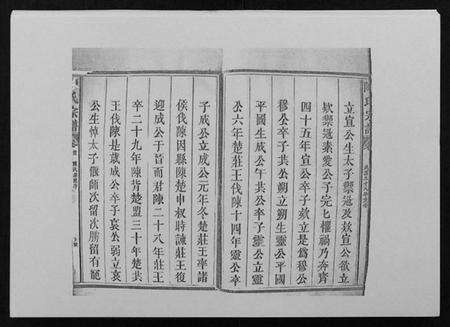 立宣公生太子禦寇及欵宣公欲立
欵禦寇素愛公子完七懼禍乃奔齊
四十五年宣公卒子欵立是為穆公
穆公卒子共公朔立朔生靈公平國
平國生成公午共公卒子靈公立靈
公六年楚莊王伐陳十四年靈公卒
子成公立成公元年冬楚莊王率諸
侯伐陳因縣陳楚申叔時諫莊王復
迎成公于晋而君陳二十八年莊王
卒二十九年陳背楚盟三十年楚共
王伐陳是歲成公卒子哀公弱立哀
公生悼太子偃師次留次勝留有寵
氏宗譜